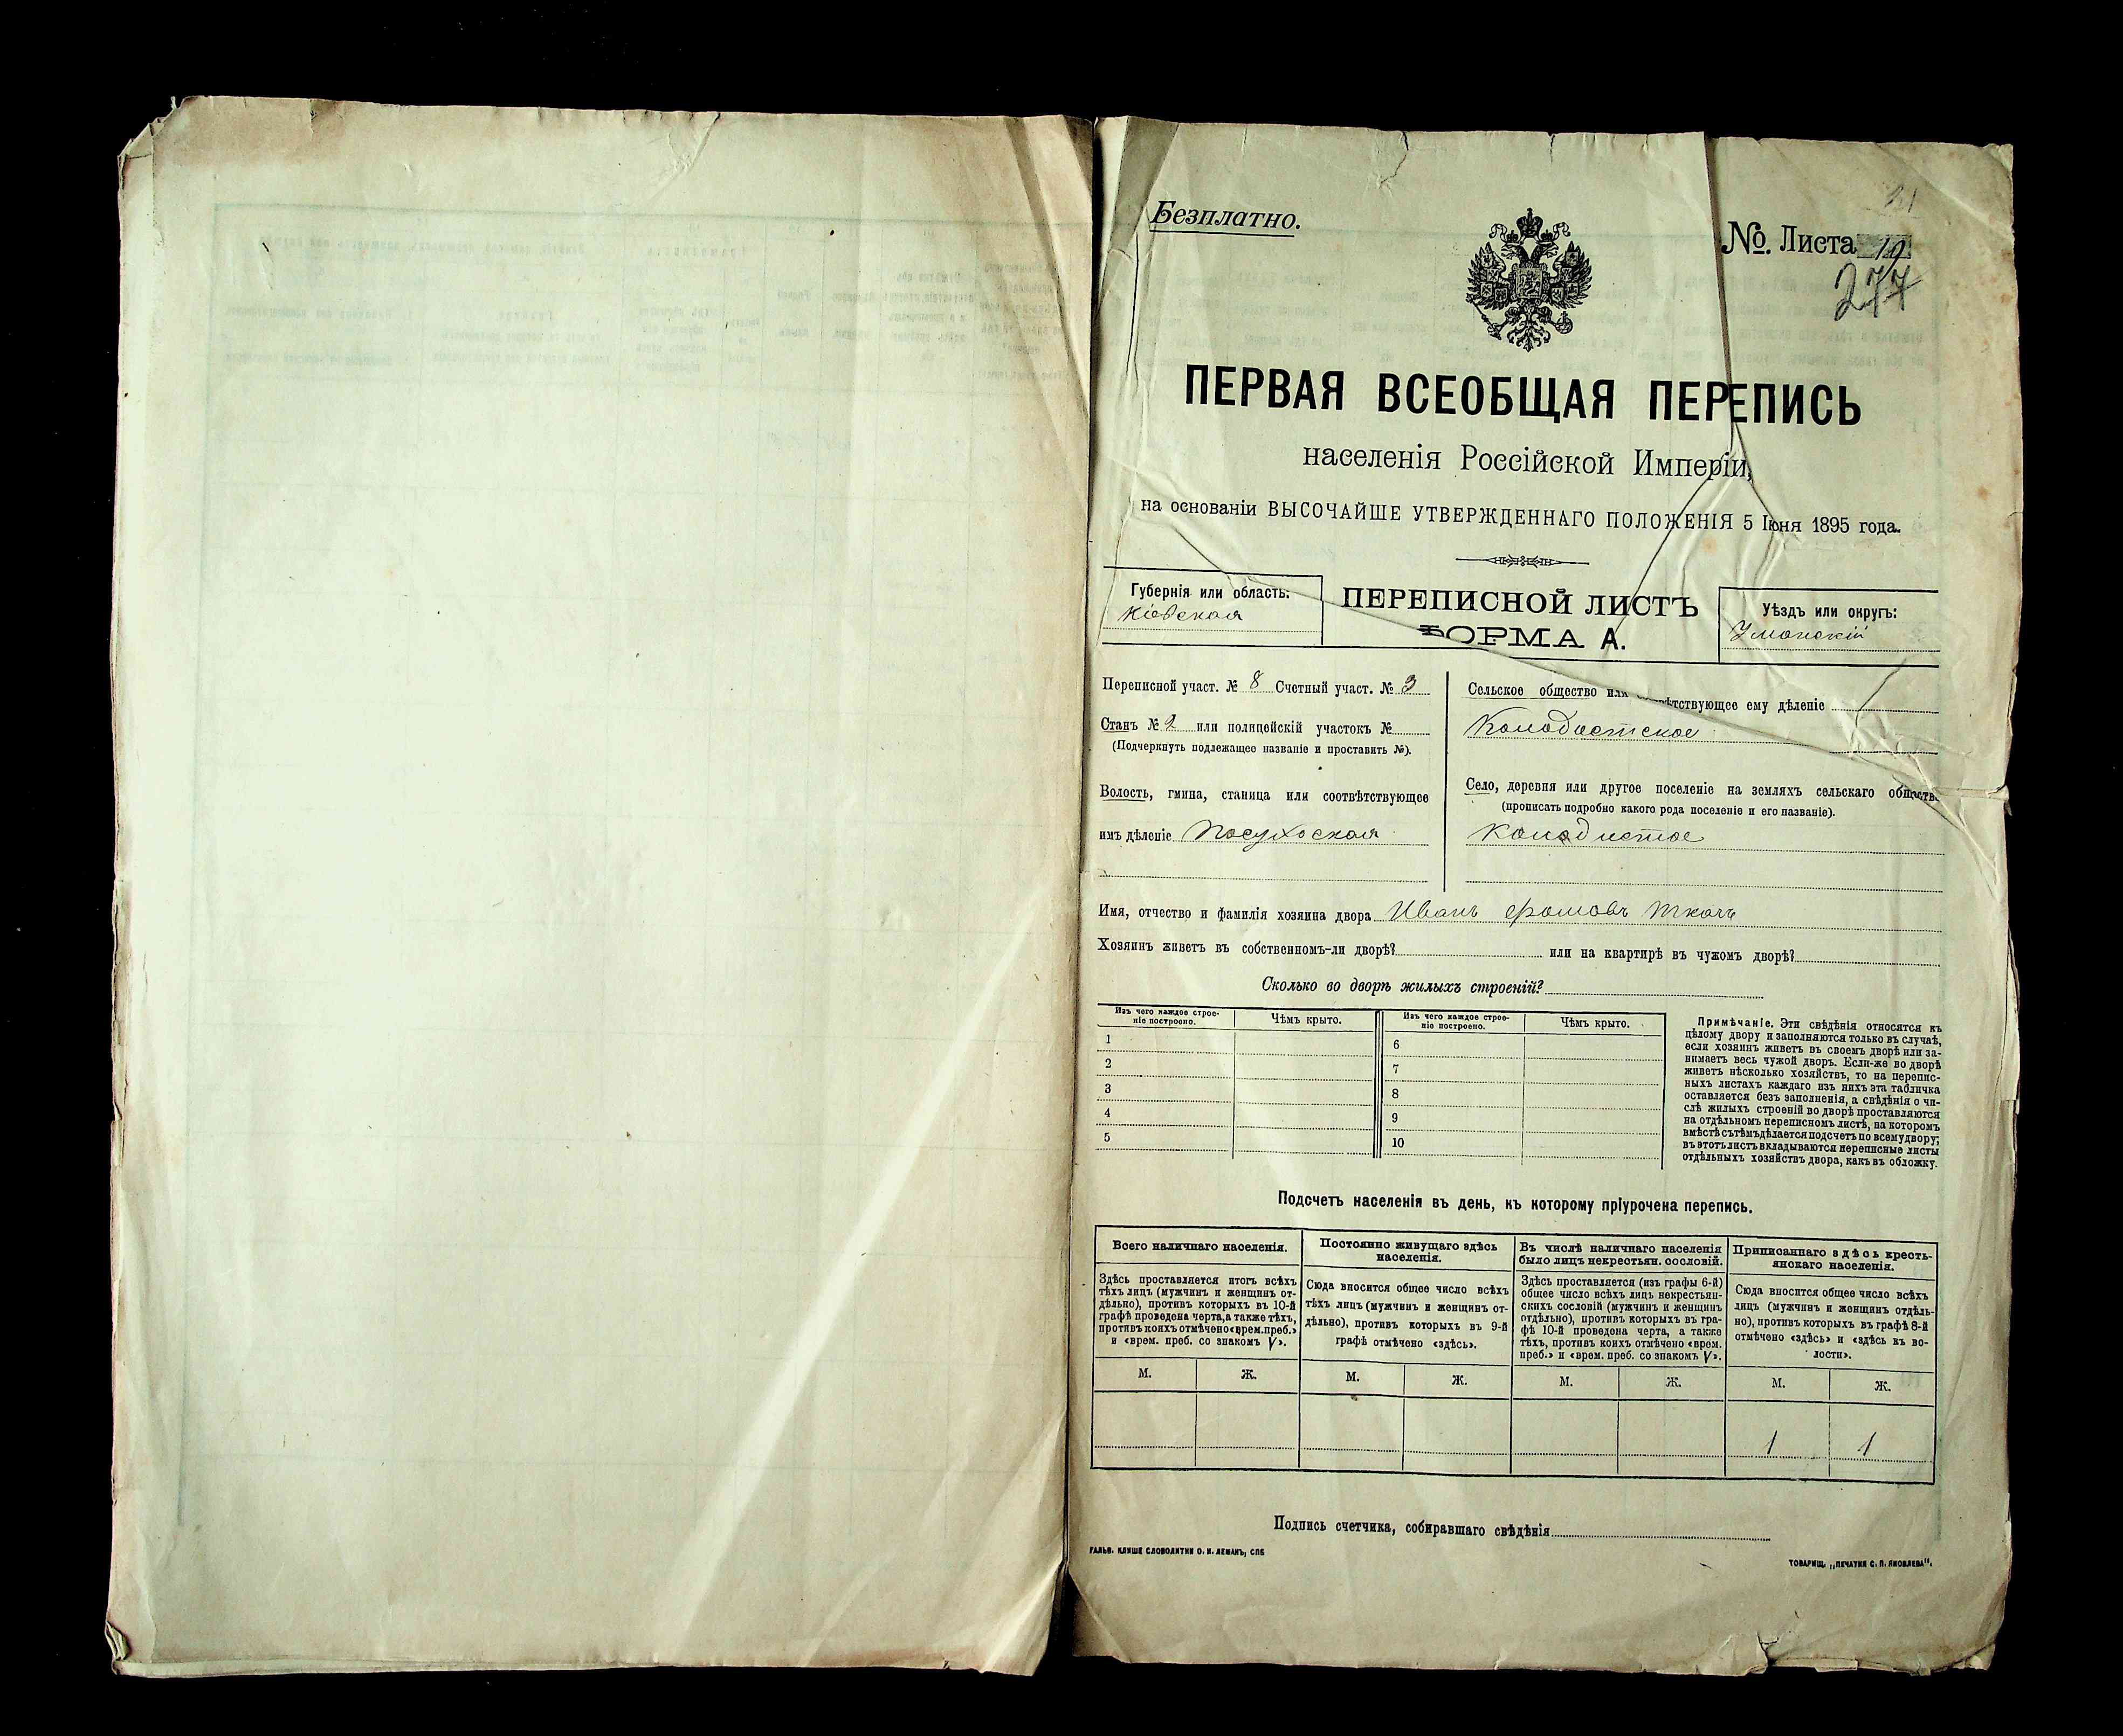 Безплатно.
№. Листа 19
277
ПЕРВАЯ ВСЕОБЩАЯ ПЕРЕПИСЬ
населенія Россійской Имперіи,
на основаніи ВЫСОЧАЙШЕ УТВЕРЖДЕННАГО ПОЛОЖЕНІЯ 5 Іюня 1895 года.
Губернія или область:
Кіевская
ПЕРЕПИСНОЙ ЛИСТЪ
ФОРМА А.
Уѣздъ или округъ:
Уманскій
Переписной участ. № 8 Счетный участ. № 3
Станъ № 2 или полицейскій участокъ №
(Подчеркнуть подлежащее названіе и проставить №).
Волость, гмина, станица или соотвѣтствующее
имъ дѣленіе Посуховская
Сельское общество или соотвѣтствующее ему дѣленіе
Колодистское
Село, деревня или другое поселеніе на земляхъ сельскаго общества
(прописать подробно какого рода поселеніе и его названіе).
Колодистое
Имя, отчество и фамилія хозяина двора Иванъ Фомовъ Ткачъ
Хозяинъ живетъ въ собственномъ-ли дворѣ? или на квартирѣ въ чужомъ дворѣ?
Сколько во дворѣ жилыхъ строеній?
Изъ чего каждое строе-
ніе построено.
Чѣмъ крыто.
1
2
3
4
5
Изъ чего каждое строе-
ніе построено.
Чѣмъ крыто.
6
7
8
9
10
Примѣчаніе. Эти свѣдѣнія относятся къ
цѣлому двору и заполняются только въ случаѣ,
если хозяинъ живетъ въ своемъ дворѣ или за-
нимаетъ весь чужой дворъ. Если-же во дворѣ
живетъ нѣсколько хозяйствъ, то на перепис-
ныхъ листахъ каждаго изъ нихъ эта табличка
оставляется безъ заполненія, а свѣдѣнія о чи-
слѣ жилыхъ строеній во дворѣ проставляются
на отдѣльномъ переписномъ листѣ, на которомъ
вмѣстѣ съ тѣмъ дѣлается подсчетъ по всему двору;
въ этотъ листъ вкладываются переписные листы
отдѣльныхъ хозяйствъ двора, какъ въ обложку.
Подсчетъ населенія въ день, къ которому пріурочена перепись.
Всего наличнаго населенія.
Здѣсь проставляется итогъ всѣхъ
тѣхъ лицъ (мужчинъ и женщинъ от-
дѣльно), противъ которыхъ въ 10-й
графѣ проведена черта, а также тѣхъ,
противъ коихъ отмѣчено «врем. преб.»
и «врем. преб. со знакомъ V».
М. Ж.
Постоянно живущаго здѣсь
населенія.
Сюда вносится общее число всѣхъ
тѣхъ лицъ (мужчинъ и женщинъ от-
дѣльно), противъ которыхъ въ 9-й
графѣ отмѣчено «здѣсь».
М. Ж.
Въ числѣ наличнаго населенія
было лицъ некрестьян. сословій.
Здѣсь проставляется (изъ графы 6-й)
общее число всѣхъ лицъ некрестьян-
скихъ сословій (мужчинъ и женщинъ
отдѣльно), противъ которыхъ въ гра-
фѣ 10-й проведена черта, а также
тѣхъ, противъ коихъ отмѣчено «врем.
преб.» и «врем. преб. со знакомъ V».
М. Ж.
Приписаннаго здѣсь кресть-
янскаго населенія.
Сюда вносится общее число всѣхъ
лицъ (мужчинъ и женщинъ отдѣль-
но), противъ которыхъ въ графѣ 8-й
отмѣчено «здѣсь» и «здѣсь къ во-
лости».
М. Ж.
1 1
Подпись счетчика, собиравшаго свѣдѣнія
ГАЛЬВ. КЛИШЕ СЛОВОЛИТНИ О. И. ЛЕМАНЪ, СПБ
ТОВАРИЩ. „ПЕЧАТНЯ С. П. ЯКОВЛЕВА".